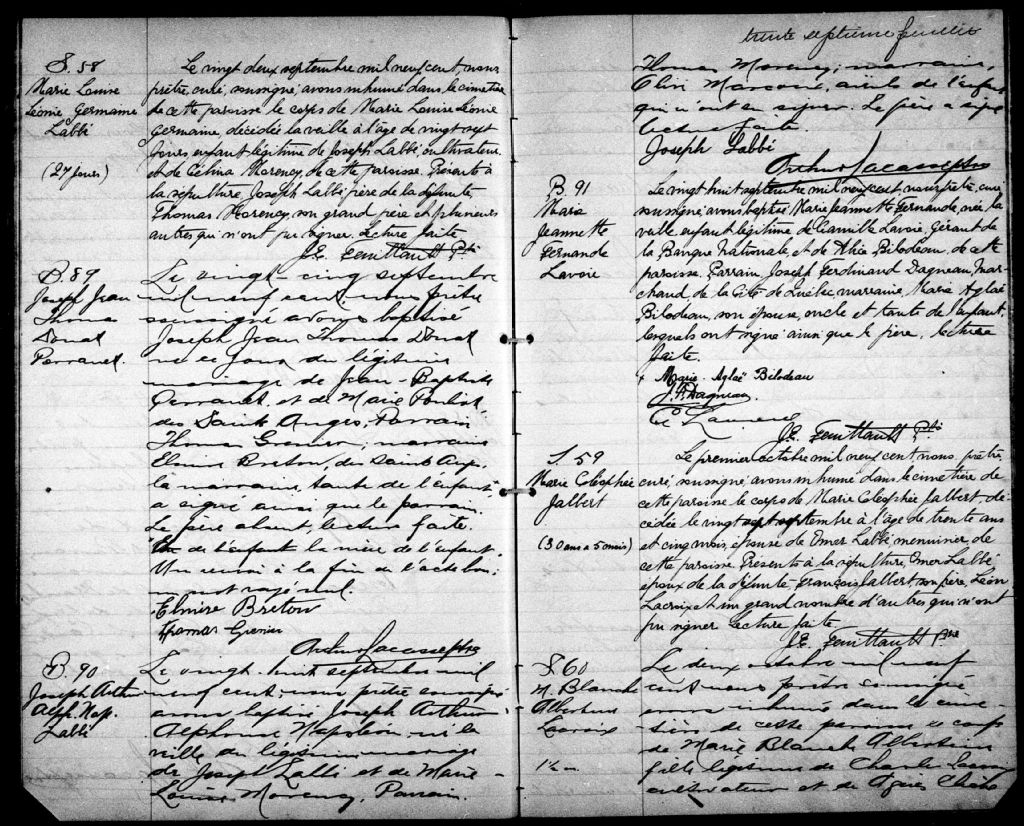 S. 58
Marie Louise
Léonie Germaine
Labbé
(27 jours)
Le vingt deux septembre mil neuf cent, nous,
prêtre, curé, soussigné, avons inhumé dans le cimetière
de cette paroisse le corps de Marie Louise Léonie
Germaine, décédée la veille à l'âge de vingt sept
jours, enfant légitime de Joseph Labbé, cultivateur,
et de Célina Morency, de cette paroisse. Présents à
la sépulture Joseph Labbé père de la défunte,
Thomas Morency, son grand père et plusieurs
autres qui n'ont pu signer. Lecture faite
J. E. Feuiltault Ptre
B. 89
Joseph Jean
Thomas
Donat
Perrault
Le vingt cinq septembre
mil neuf cent, nous prêtre
soussigné avons baptisé
Joseph Jean Thomas Donat
né ce jour du légitime
mariage de Jean-Baptiste
et de Marie
des Saints Anges. Parrain
Thomas Grenier; marraine
Elmire Breton, des Saints Anges.
la marraine, tante de l'enfant
a signé ainsi que le parrain.
Le père absent, lecture faite.
de l'enfant la mère de l'enfant.
Un renvoi à la fin de l'acte bon;
mot rayé nul.
Elmire Breton
Thomas Grenier
Arthur Lacasse ptre
B. 90
Joseph Arthur
Alph. Nap.
Labbé
Le vingt-huit septembre mil
neuf cent, nous prêtre soussigné
avons baptisé Joseph Arthur
Alphonse Napoléon, né la
veille du légitime mariage
de Joseph Labbé et de Marie-
Louise Morency. Parrain,
trente septième feuillet
Thomas Morency; marraine,
aïeuls de l'enfant
qui n'ont su signer. Le père a signé
lecture faite.
Joseph Labbé
Arthur Lacasse ptre
B. 91
Marie
Jeannette
Fernande
Lavoie
Le vingt huit septembre mil neuf cent, nous prêtre, curé
soussigné avons baptisé Marie Jeannette Fernande, née la
veille, enfant légitime de Camille Lavoie, Gérant de
la Banque Nationale, et de Alice Bilodeau, de cette
paroisse. Parrain, Joseph Ferdinand Dagneau, mar-
chand, de la Cité de Québec, marraine, Marie Aglaé
Bilodeau, son épouse, oncle et tante de l'enfant,
lesquels ont signé ainsi que le père. Lecture
faite.
Marie-Aglaë Bilodeau
J. F. Dagneau
J. E. Feuiltault Ptre
S. 59
Marie Cléophée
Jalbert
(30 ans & 5 mois)
Le premier octobre mil neuf cent, nous, prêtre,
curé, soussigné, avons inhumé dans le cimetière de
cette paroisse le corps de Marie Cléophée Jalbert dé-
cédée le vingt sept septembre à l'âge de trente ans
et cinq mois, épouse de Omer Labbé menuisier, de
cette paroisse. Présents à la sépulture, Omer Labbé
époux de la défunte, François Jalbert son père, Léon
Lacroix et un grand nombre d'autres qui n'ont
pu signer. Lecture faite
J. E. Feuiltault Ptre
S. 60
M. Blanche
Albertine
Lacroix
Le deux octobre mil neuf
cent nous prêtre soussigné
avons inhumé dans le cime-
tière de cette paroisse le corps
de Marie Blanche Albertine
fille légitime de Charles Lacroix
cultivateur et de